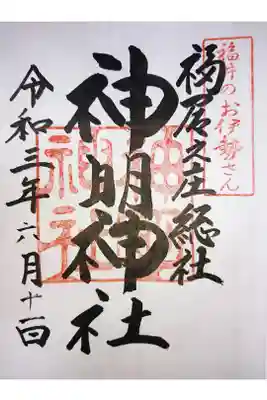 福井のお伊勢さん
福居之庄総社
神明神社
令和三年六月十一日